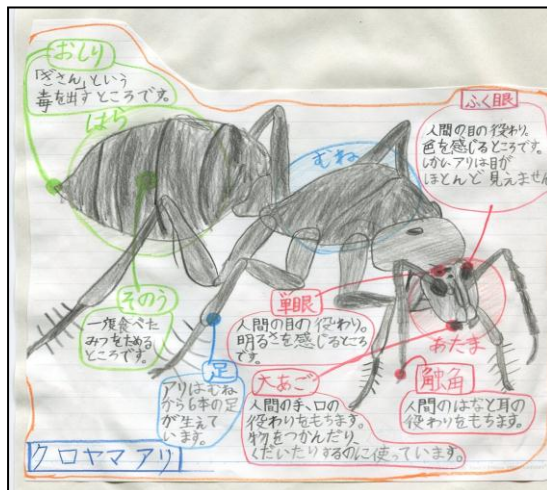 おしり
「ぎさん」という
毒を出すところです。
はら
ふく眼
人間の目の役わり。
色を感じるところです。
しかしアリは目が
ほとんど見えません
むね
そのう
一度食べた
みつをためる
ところです。
単眼
人間の目の役わり。
明るさを感じるところ
です。
おたま
足
アリはむね
から6本の足
が生えて
います。
大あご
人間の手、口の
役わりをもちます。
物をつかんだり、
くだいたりするのに使っています。
触角
人間のはなと耳の
役わりをもちます。
クロヤマアリ